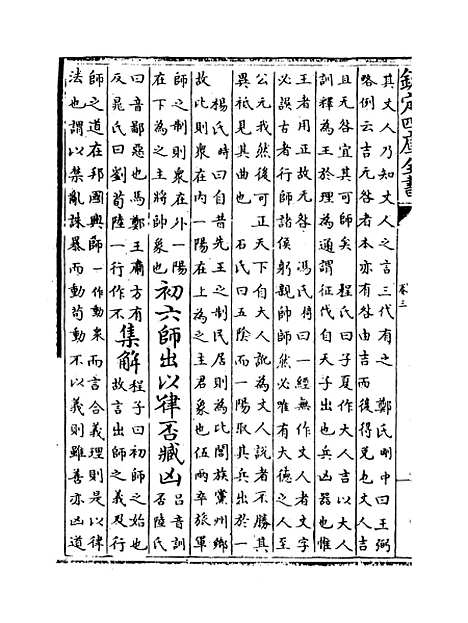 欽定四庫全書
卷三
其丈人乃知丈人之言三代有之　鄭氏剛中曰王弼
略例云吉无咎者本亦有咎由吉而後得免也丈人吉
且无咎宜其可師矣　程氏曰子夏作大人吉以大人
訓釋為王於理為通謂征代自天子出也兵凶器也惟
王者用正故无咎　馮氏椅曰一經無作丈人者字之
必誤古者行師諸侯躬親師師然必唯有大德之人至
公无我然後可正天下故自大人訛為丈人說者不勝其
異祇見其曲也　石氏曰五陰而一陽取其兵出於一
楊氏時曰自昔先王之制民居則為比閭族黨州鄉
故此則衆在內一陽在上為之主君象也伍兩卒旅軍
師之制則衆在外一陽
在下為之主將帥象也
初六師出以律否臧凶
呂音訓
否陸氏
曰音鄙惡也馬鄭王肅方有
反晁氏曰劉荀陸一行作不
集解
程子曰初師之始也
故言出師之義及行
師之道在邦國興師一作動衆而言合義理則是以律
法也謂以禁亂誅暴而動苟動不以義則雖善亦凶道